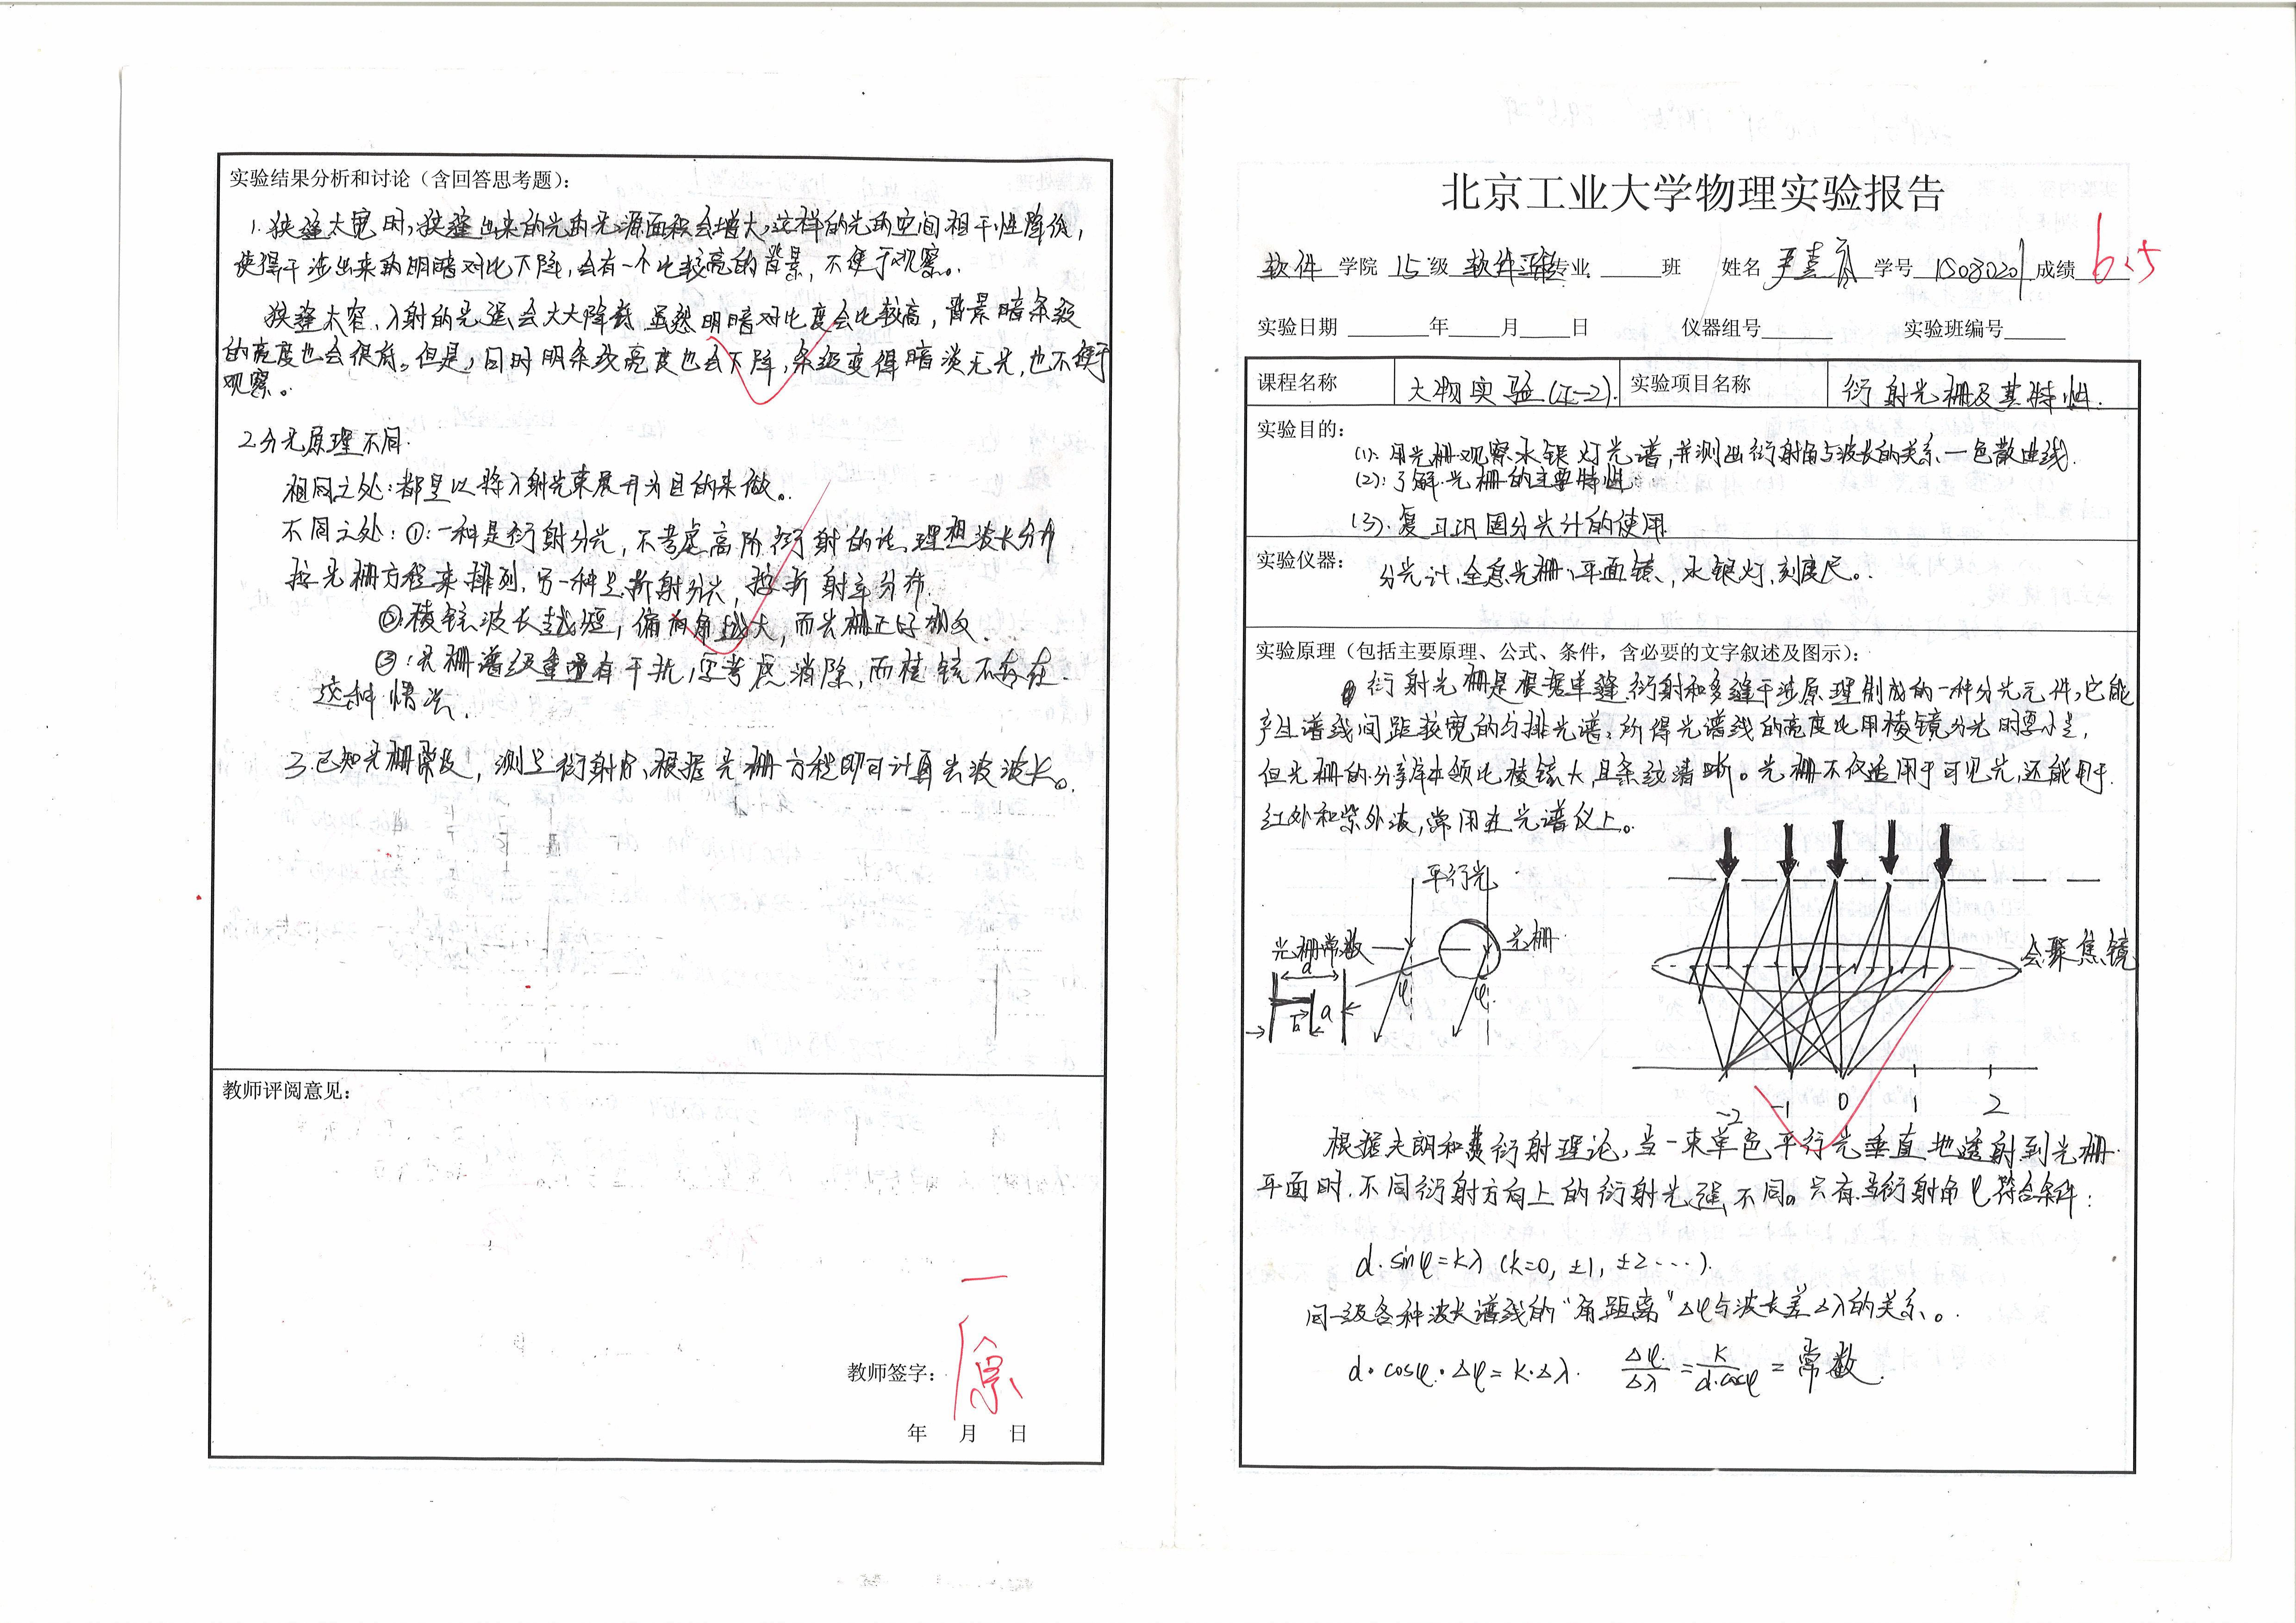 实验结果分析和讨论（含回答思考题）：
1. 狭缝太宽时，狭缝出来的光的光源面积会增大，这样的光的空间相干性降低，
使得干涉出来的明暗对比下降，会有一个比较亮的背景，不便于观察。
狭缝太窄，入射的光强会大大降低，虽然明暗对比度会比较高，背景暗条纹
的亮度也会很低。但是，同时明条纹亮度也会下降，条纹变得暗淡无光，也不便于
观察。
2.分光原理不同.
相同之处：都是以将入射光束展开为目的来做。
不同之处：①：一种是衍射分光，不考虑高阶衍射的话，理想波长分布
按光栅方程来排列，另一种是折射分光，按折射率分布.
②棱镜波长越短，偏向角越大，而光栅正好相反.
③：光栅谱级重叠有干扰，应考虑消除，而棱镜不存在
这种情况.
3.已知光栅常数，测出衍射角，根据光栅方程即可计算出波波长。
教师评阅意见：
教师签字：
年 月 日
北京工业大学物理实验报告
软件 学院 15 级 软件 专业 班 姓名 学号 1508020 成绩
实验日期 年 月 日 仪器组号 实验班编号
课程名称 大物实验(Ⅱ-2). 实验项目名称 衍射光栅及其特性.
实验目的：
(1). 用光栅观察水银灯光谱，并测出衍射角与波长的关系—色散曲线.
(2)：了解光栅的主要特性.
(3). 复习巩固分光计的使用.
实验仪器：
分光计、全息光栅、平面镜，水银灯，刻度尺。
实验原理（包括主要原理、公式、条件，含必要的文字叙述及图示）：
衍射光栅是根据单缝衍射和多缝干涉原理制成的一种分光元件，它能
产生谱线间距较宽的匀排光谱，所得光谱线的亮度比用棱镜分光时要小些，
但光栅的分辨本领比棱镜大，且条纹清晰。光栅不仅适用于可见光，还能用于
红外和紫外波，常用在光谱仪上。
平行光
光栅常数 光栅
d
φ φ
b a
会聚焦镜
-2 -1 0 1 2
根据夫朗和费衍射理论，当一束单色平行光垂直地透射到光栅
平面时，不同衍射方向上的衍射光强不同。只有当衍射角φ符合条件：
d·sinφ=kλ (k=0, ±1, ±2···).
同一级各种波长谱线的“角距离”Δφ与波长差Δλ的关系。
d·cosφ·Δφ=K·Δλ. Δφ/Δλ = K/d·cosφ = 常数.